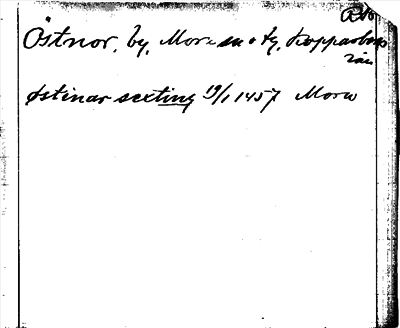 Östnor, by, Mora sn o tg, Kopparbergs
län
Østinar sexting 19/1 1457 Mora